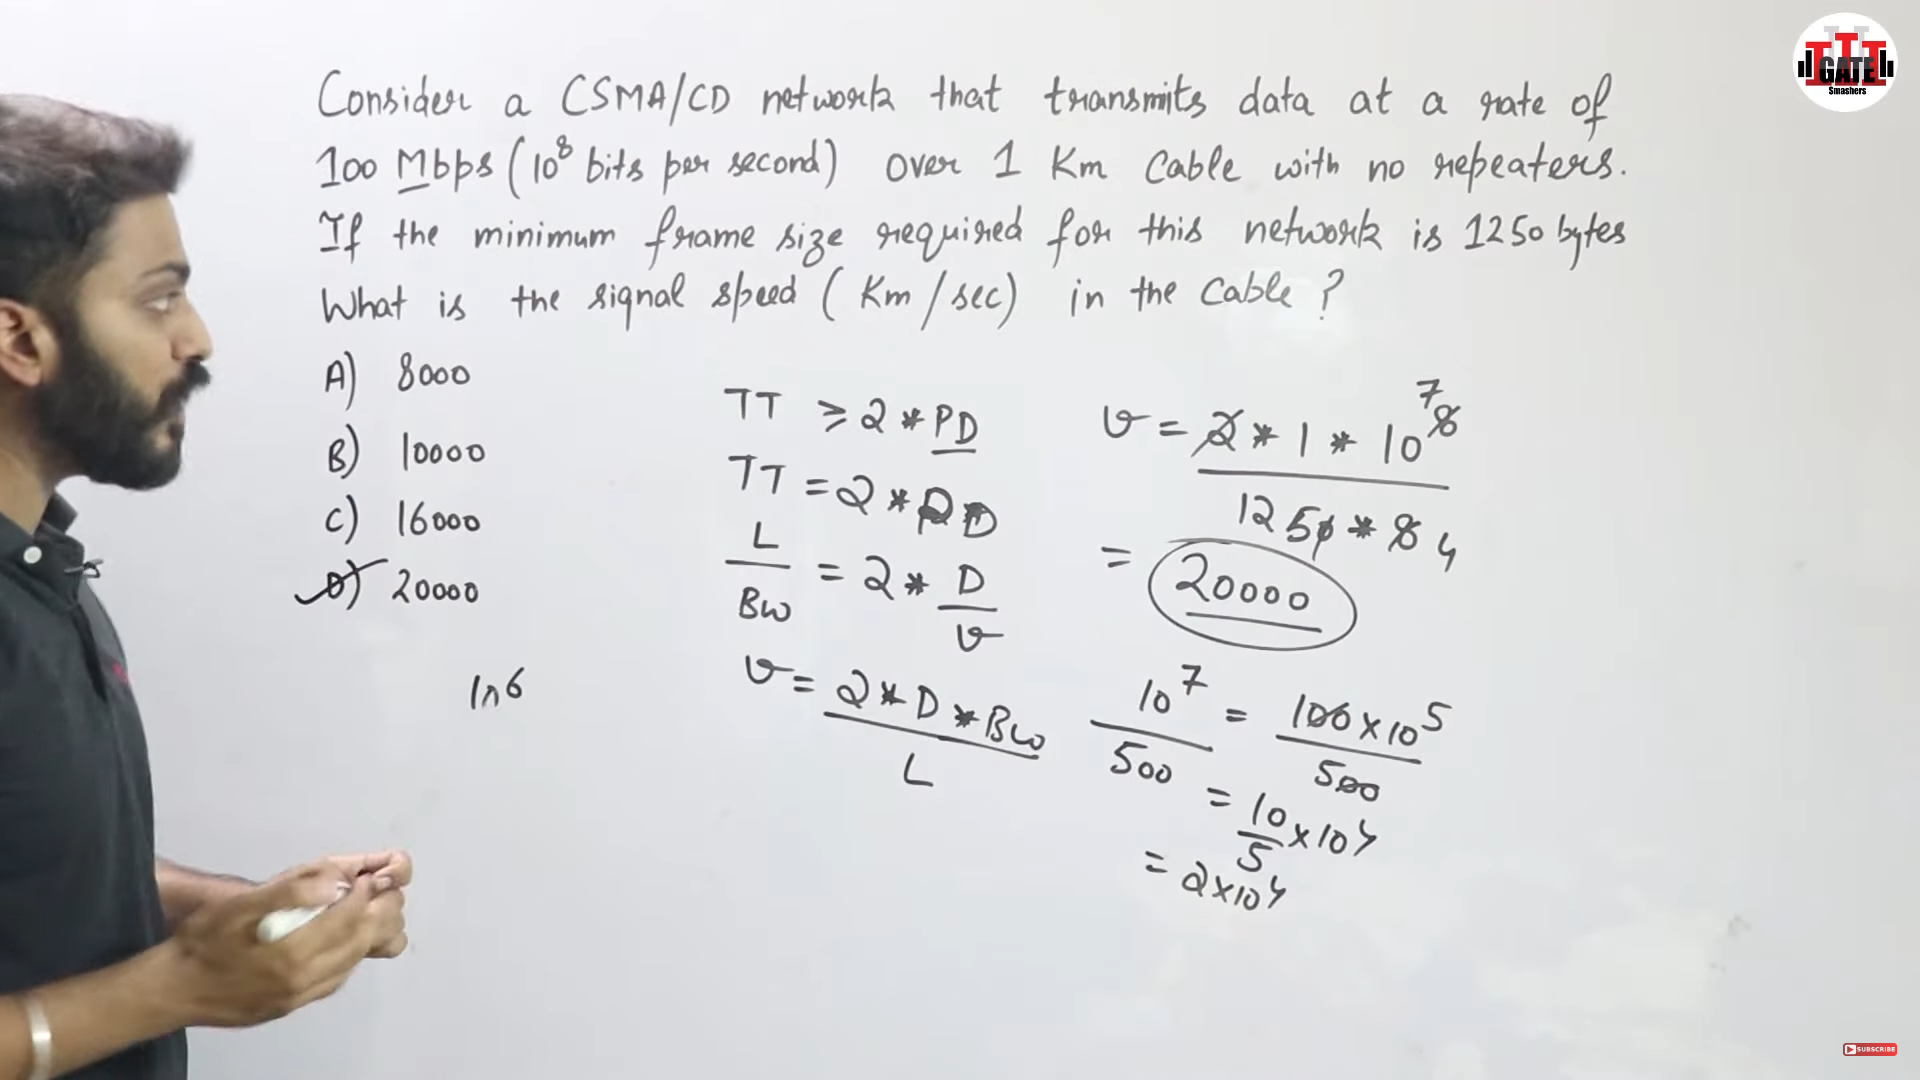 Consider a CSMA/CD network that transmits data at a rate of
100 Mbps (10^8 bits per second) over 1 Km Cable with no repeaters.
If the minimum frame size required for this network is 1250 bytes
What is the signal speed (Km/sec) in the Cable ?
A) 8000
B) 10000
C) 16000
D) 20000
10^6
TT ≥ 2 * PD
TT = 2 * PD
L/Bw = 2 * D/v
v = 2 * D * Bw / L
v = 2 * 1 * 10^8 7 / 1250 * 8 4
= 20000
10^7 / 500 = 100 x 10^5 / 500
= 10/5 x 10^4
= 2 x 10^4
GATE
Smashers
SUBSCRIBE